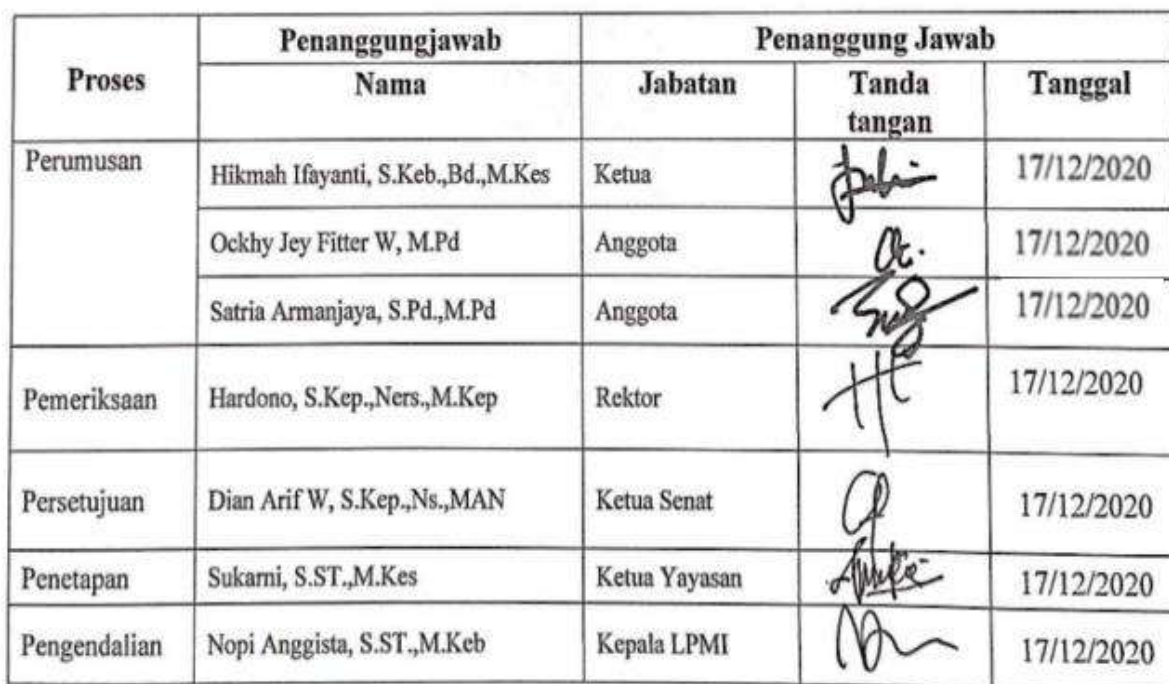 Proses Penanggungjawab Penanggung Jawab
Nama Jabatan Tanda tangan Tanggal
Perumusan Hikmah Ifayanti, S.Keb.,Bd.,M.Kes Ketua 17/12/2020
Ockhy Jey Fitter W, M.Pd Anggota 17/12/2020
Satria Armanjaya, S.Pd.,M.Pd Anggota 17/12/2020
Pemeriksaan Hardono, S.Kep.,Ners.,M.Kep Rektor 17/12/2020
Persetujuan Dian Arif W, S.Kep.,Ns.,MAN Ketua Senat 17/12/2020
Penetapan Sukarni, S.ST.,M.Kes Ketua Yayasan 17/12/2020
Pengendalian Nopi Anggista, S.ST.,M.Keb Kepala LPMI 17/12/2020